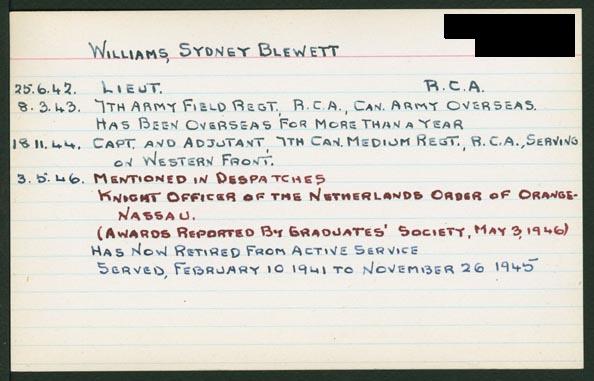 WILLIAMS, SYDNEY BLEWETT
25.6.42. LIEUT. R.C.A.
8.3.43. 7TH ARMY FIELD REGT., R.C.A., CAN. ARMY OVERSEAS.
HAS BEEN OVERSEAS FOR MORE THAN A YEAR
18.11.44. CAPT. AND ADJUTANT, 7TH CAN. MEDIUM REGT., R.C.A., SERVING
ON WESTERN FRONT.
3.5.46. MENTIONED IN DESPATCHES
KNIGHT OFFICER OF THE NETHERLANDS ORDER OF ORANGE-
NASSAU.
(AWARDS REPORTED BY GRADUATES' SOCIETY, MAY 3, 1946)
HAS NOW RETIRED FROM ACTIVE SERVICE
SERVED, FEBRUARY 10 1941 TO NOVEMBER 26 1945